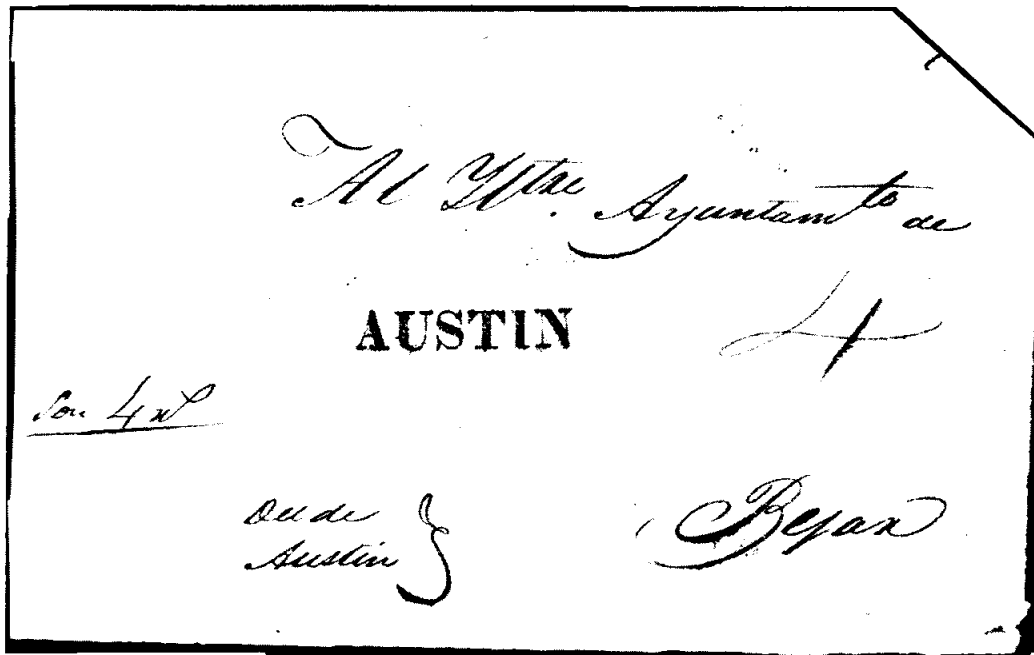 Al Yltre Ayuntamto de
AUSTIN
4
Son 4 rs
Del de
Austin
Bejar